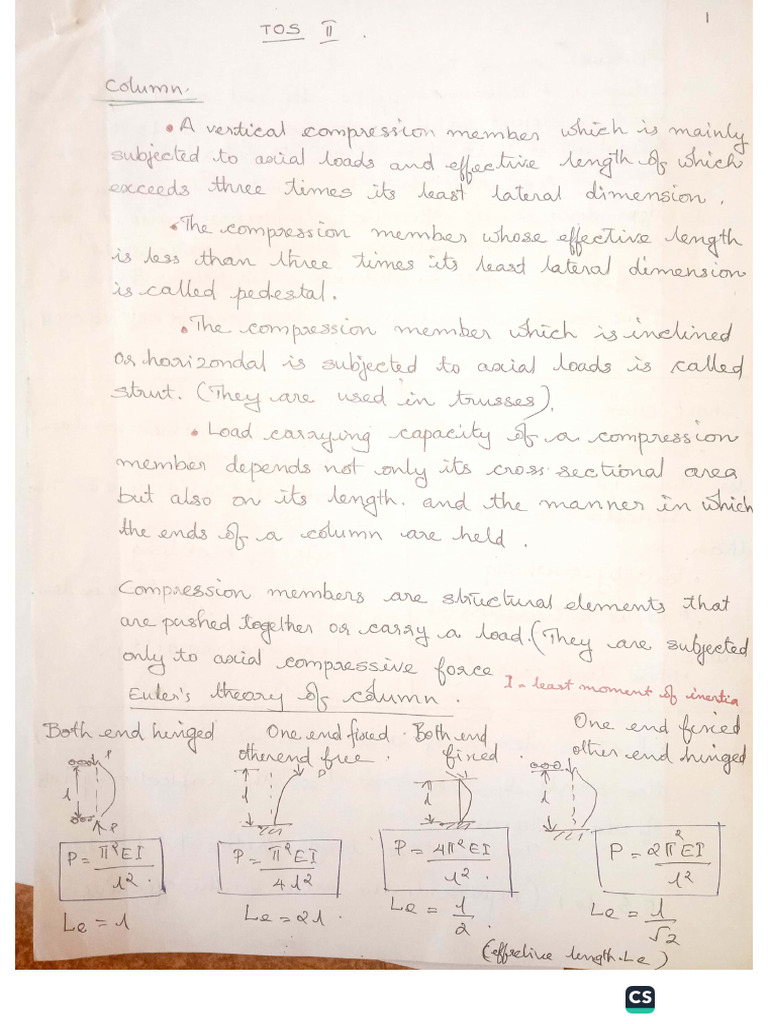 TOS II.
1
Column.
• A vertical compression member which is mainly
subjected to axial loads and effective length of which
exceeds three times its least lateral dimension.
• The compression member whose effective length
is less than three times its least lateral dimension
is called pedestal.
• The compression member which is inclined
or horizondal is subjected to axial loads is called
strut. (They are used in trusses).
• Load carrying capacity of a compression
member depends not only its cross sectional area
but also on its length. and the manner in which
the ends of a column are held.
Compression members are structural elements that
are pushed together or carry a load. (They are subjected
only to axial compressive force
I - least moment of inertia
Euler's theory of column.
Both end hinged
One end fixed other end free.
Both end fixed.
One end fixed other end hinged
P
l
P
P
l
l
l
P = π²EI / l².
P = π²EI / 4l²
P = 4π²EI / l².
P = 2π²EI / l²
Le = l
Le = 2l.
Le = l/2.
Le = l/√2
(effective length. Le)
CS